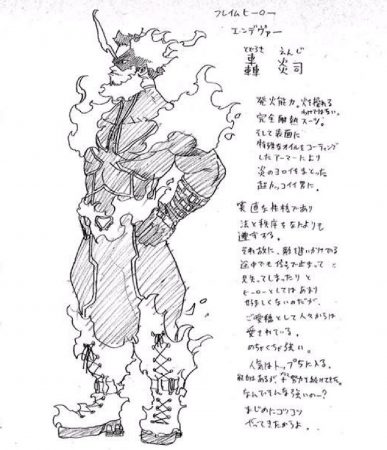 フレイムヒーロー
エンデヴァー
とどろき えんじ
轟 炎司
発火能力。火を操れる
わけではない。
完全耐熱スーツ。
そして表面に
特殊なオイルをコーティング
したアーマーにより
炎のヨロイをまとった
超カッコイイ男に。
実直な性格であり
法と秩序をなんよりも
重する。
それ故に、敵を追いかけてる
途中でも信号で止まって
見失ってしまったりと
ヒーローとしてはあまり
好ましくないのだが、
ご愛嬌として人々からは
愛されている。
めちゃくちゃ強い。
人気はトップ5に入る。
努力を続けてきた。
なんでそんな強いのー?
まじめにコツコツ
やってきたからよ。